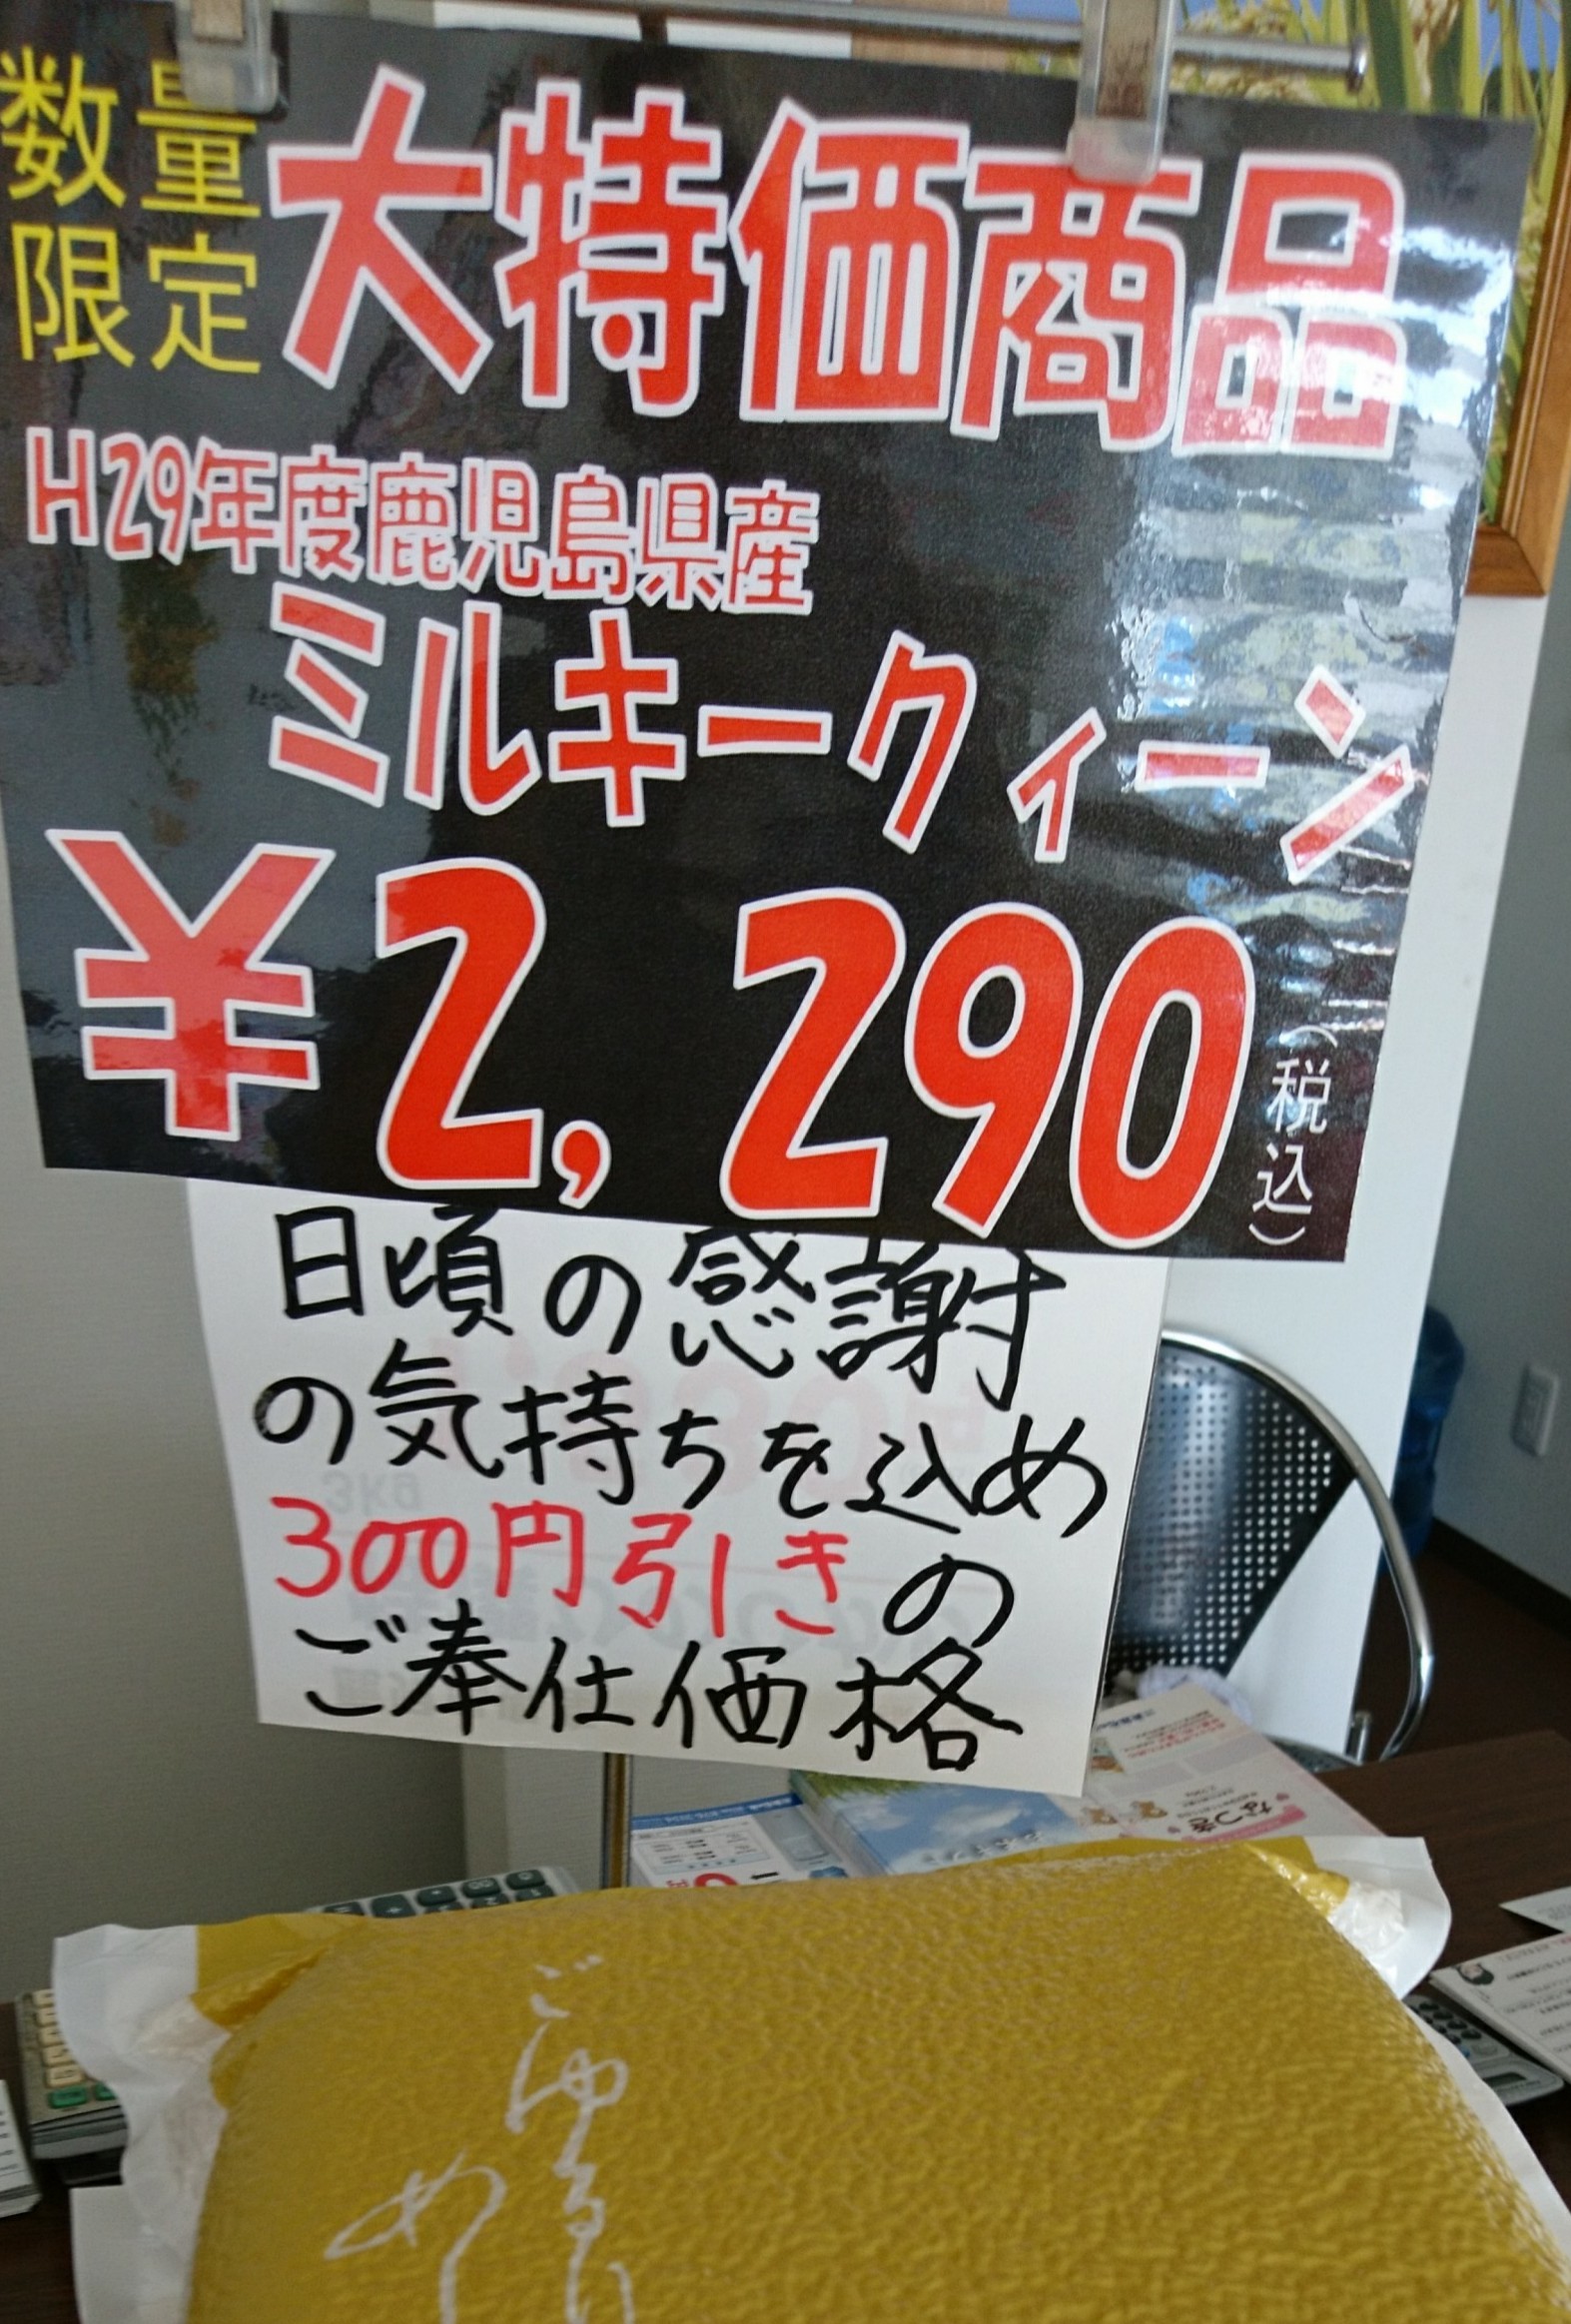 数量
限定
大特価商品
H29年度鹿児島県産
ミルキークィーン
¥2,290
(税込)
日頃の感謝
の気持ちを込め
300円引きの
ご奉仕価格
なつき